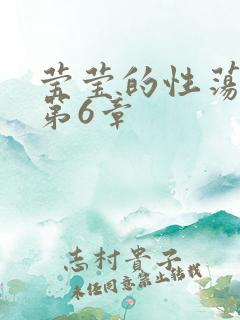 莹莹的性荡
第6章
志村貴子
未经同意禁止转载